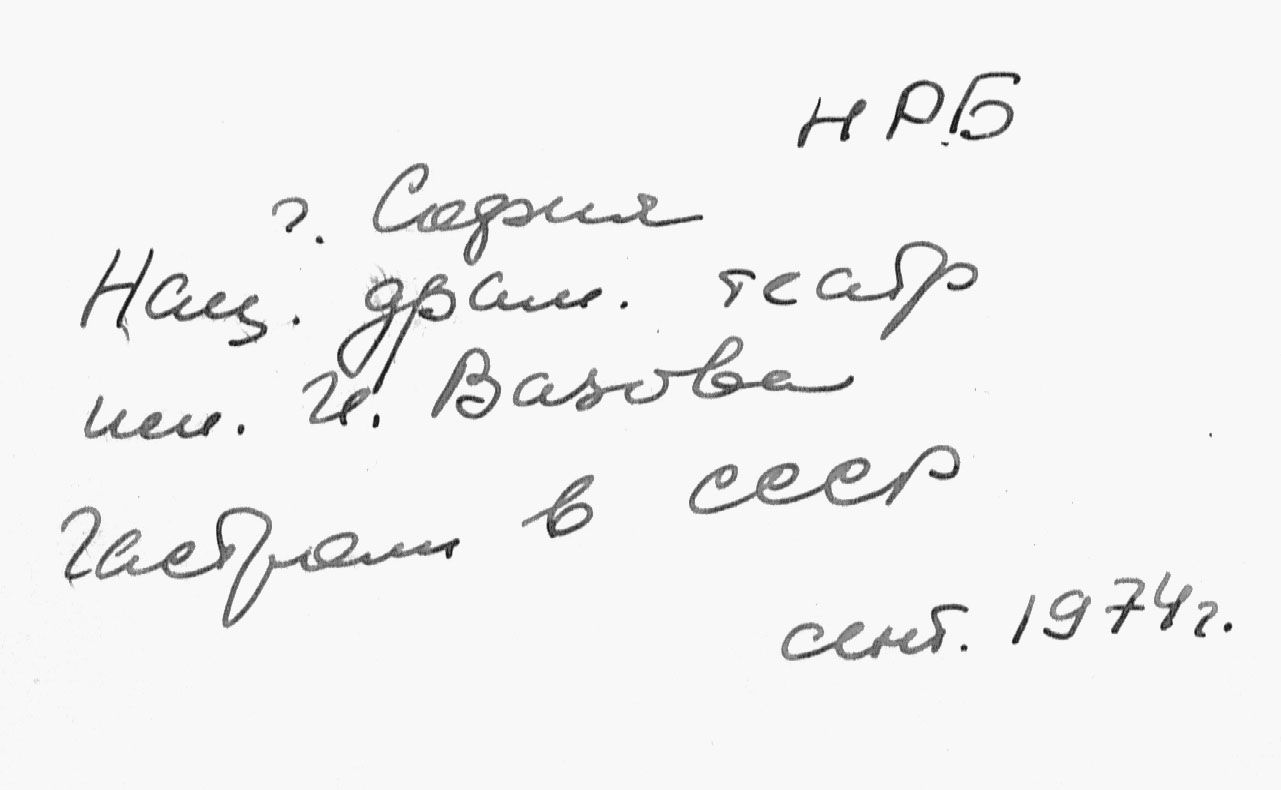 НРБ
г. София
Нац. драм. театр
им. И. Вазова
Гастроли в СССР
сент. 1974 г.